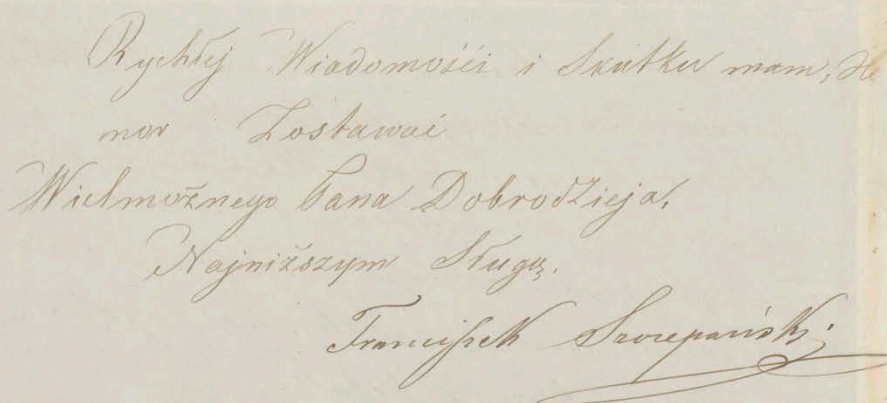 Rychłéj Wiadomośći i Skutku mam, Ho
nor Zostawać
Wielmożnego Pana Dobrodzieja,
Najniższym Sługą.
Franciszek Szczepański